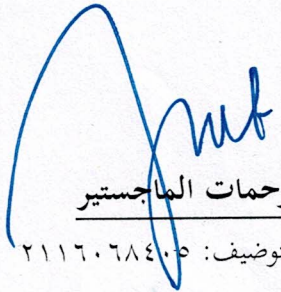 رحمات الماجستير
توضيف: ٢١١٦٠٦٨٤٠٥